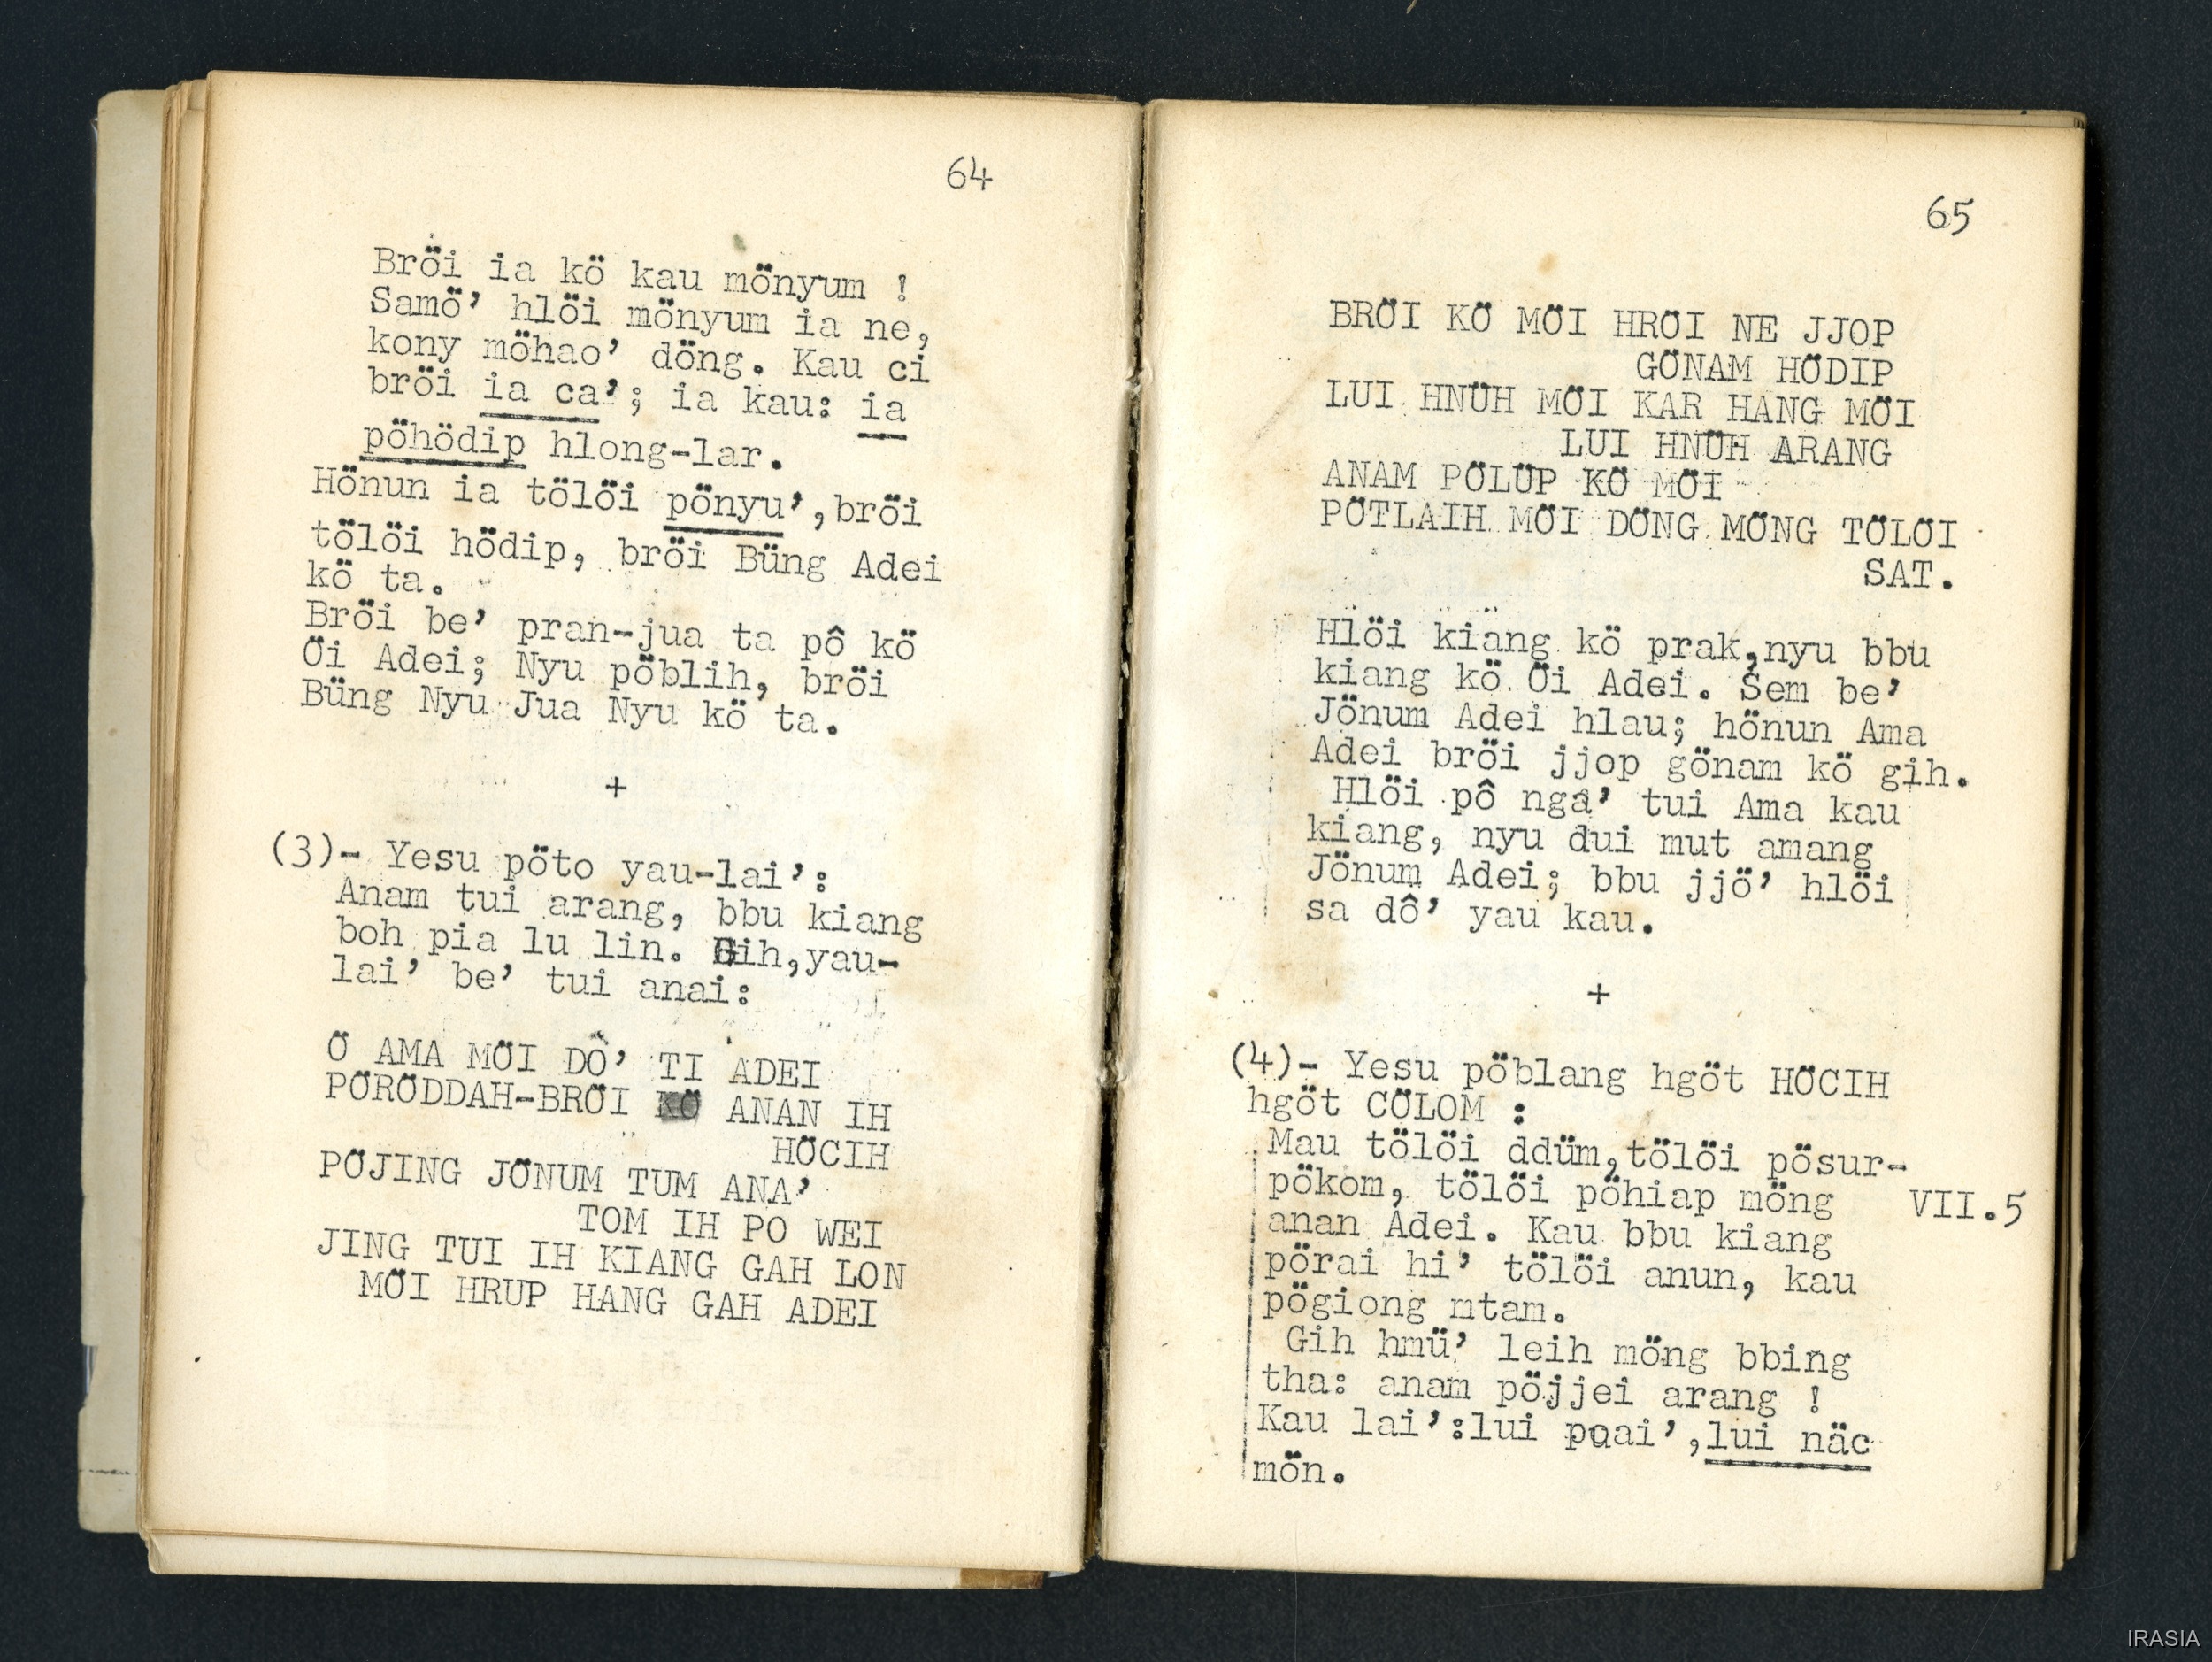 64
Bröi ia kö kau mönyum !
Samö’ hlöi mönyum ia ne,
kony möhao’ döng. Kau ci
bröi ia ca’; ia kau: ia
pöhödip hlong-lar.
Hönun ia tölöi pönyu’,bröi
tölöi hödip, bröi Büng Adei
kö ta.
Bröi be’ pran-jua ta pô kö
Öi Adei; Nyu pöblih, bröi
Büng Nyu Jua Nyu kö ta.
+
(3)- Yesu pöto yau-lai’:
Anam tui arang, bbu kiang
boh pia lu lin. Gih,yau-
lai’ be’ tui anai:
Ö AMA MÖI DÔ’ TI ADEI
PÖRÖDDAH-BRÖI KÖ ANAN IH
HÖCIH
PÖJING JÖNUM TUM ANA’
TOM IH PO WEI
JING TUI IH KIANG GAH LON
MÖI HRUP HANG GAH ADEI
65
BRÖI KÖ MÖI HRÖI NE JJOP
GÖNAM HÖDIP
LUI HNÜH MÖI KAR HANG MÖI
LUI HNÜH ARANG
ANAM PÖLÜP KÖ MÖI
PÖTLAIH MÖI DÖNG MÖNG TÖLÖI
SAT.
Hlöi kiang kö prak,nyu bbu
kiang kö Öi Adei. Sem be’
Jönum Adei hlau; hönun Ama
Adei bröi jjop gönam kö gih.
Hlöi pô ngă’ tui Ama kau
kiang, nyu dui mut amang
Jönum Adei; bbu jjö’ hlöi
sa dô’ yau kau.
+
(4)- Yesu pöblang hgöt HÖCIH
hgöt CÖLOM :
Mau tölöi ddüm,tölöi pösur-
pökom, tölöi pöhiap möng
VII.5
anan Adei. Kau bbu kiang
pörai hi’ tölöi anun, kau
pögiong mtam.
Gih hmü’ leih möng bbing
tha: anam pöjjei arang !
Kau lai’:lui pqai’,lui näc
mön.
IRASIA